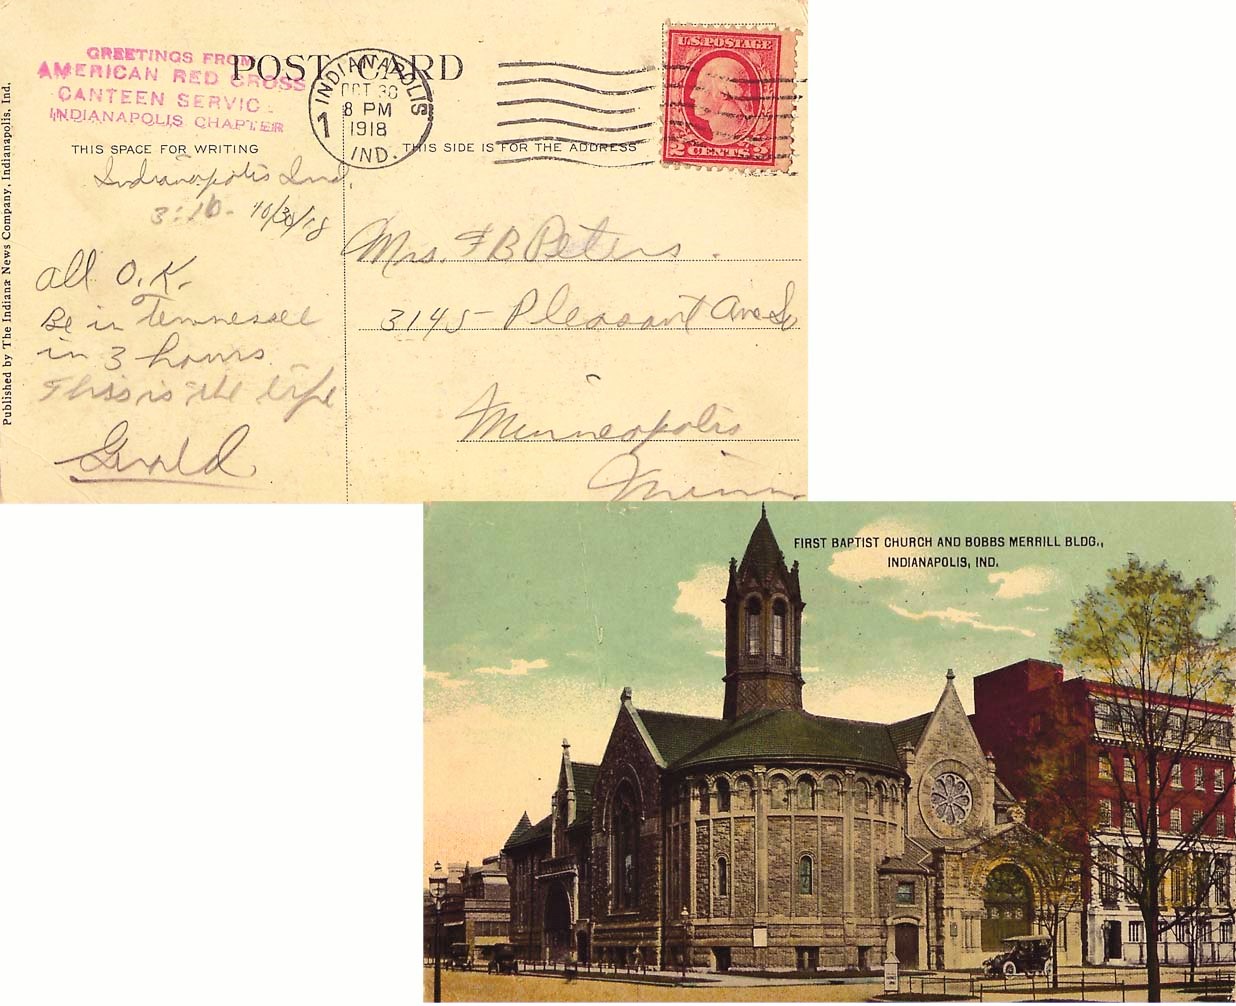 GREETINGS FROM
AMERICAN RED CROSS
CANTEEN SERVIC
INDIANAPOLIS CHAPTER
POST CARD
INDIANAPOLIS
OCT 30
8 PM
1918
IND.
1
U.S. POSTAGE
2 CENTS 2
THIS SPACE FOR WRITING
THIS SIDE IS FOR THE ADDRESS
Indianapolis Ind.
3:10 - 10/30/18
All O.K.
Be in Tennessee
in 3 hours
This is the life
Gerald
Mrs. F B Peters.
3145 - Pleasant Ave So
Minneapolis
Minn
Published by The Indiana News Company, Indianapolis, Ind.
FIRST BAPTIST CHURCH AND BOBBS MERRILL BLDG.,
INDIANAPOLIS, IND.